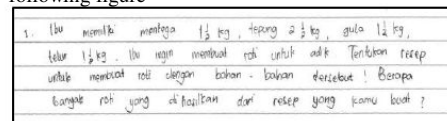 following figure
1. Ibu memiliki mentega 1 1/2 kg, tepung 2 1/2 kg, gula 1 1/2 kg,
telur 1 1/2 kg. Ibu ingin membuat roti untuk adik Tentukan resep
untuk membuat roti dengan bahan-bahan dersebut! Berapa
banyak roti yang dihasilkan dari resep yang kamu buat?